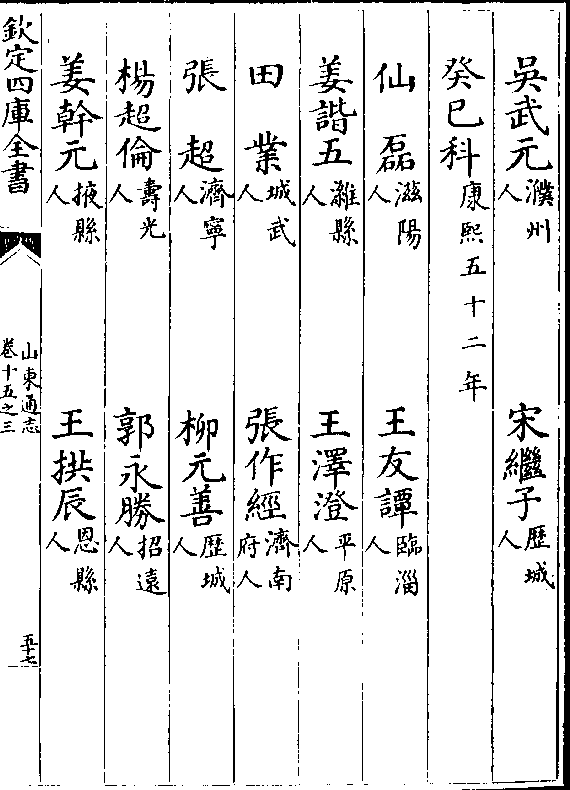 吳武元濮州人　宋繼子歷城人
癸巳科康熙五十二年
仙磊滋陽人　王友譚臨淄人
姜諧五濰縣人　王澤澄平原人
田業城武人　張作經濟南府人
張超濟寧人　柳元善歷城人
楊超倫壽光人　郭永勝招遠人
姜幹元掖縣人　王拱辰恩縣人
欽定四庫全書
山東通志
卷十五之三
五十七